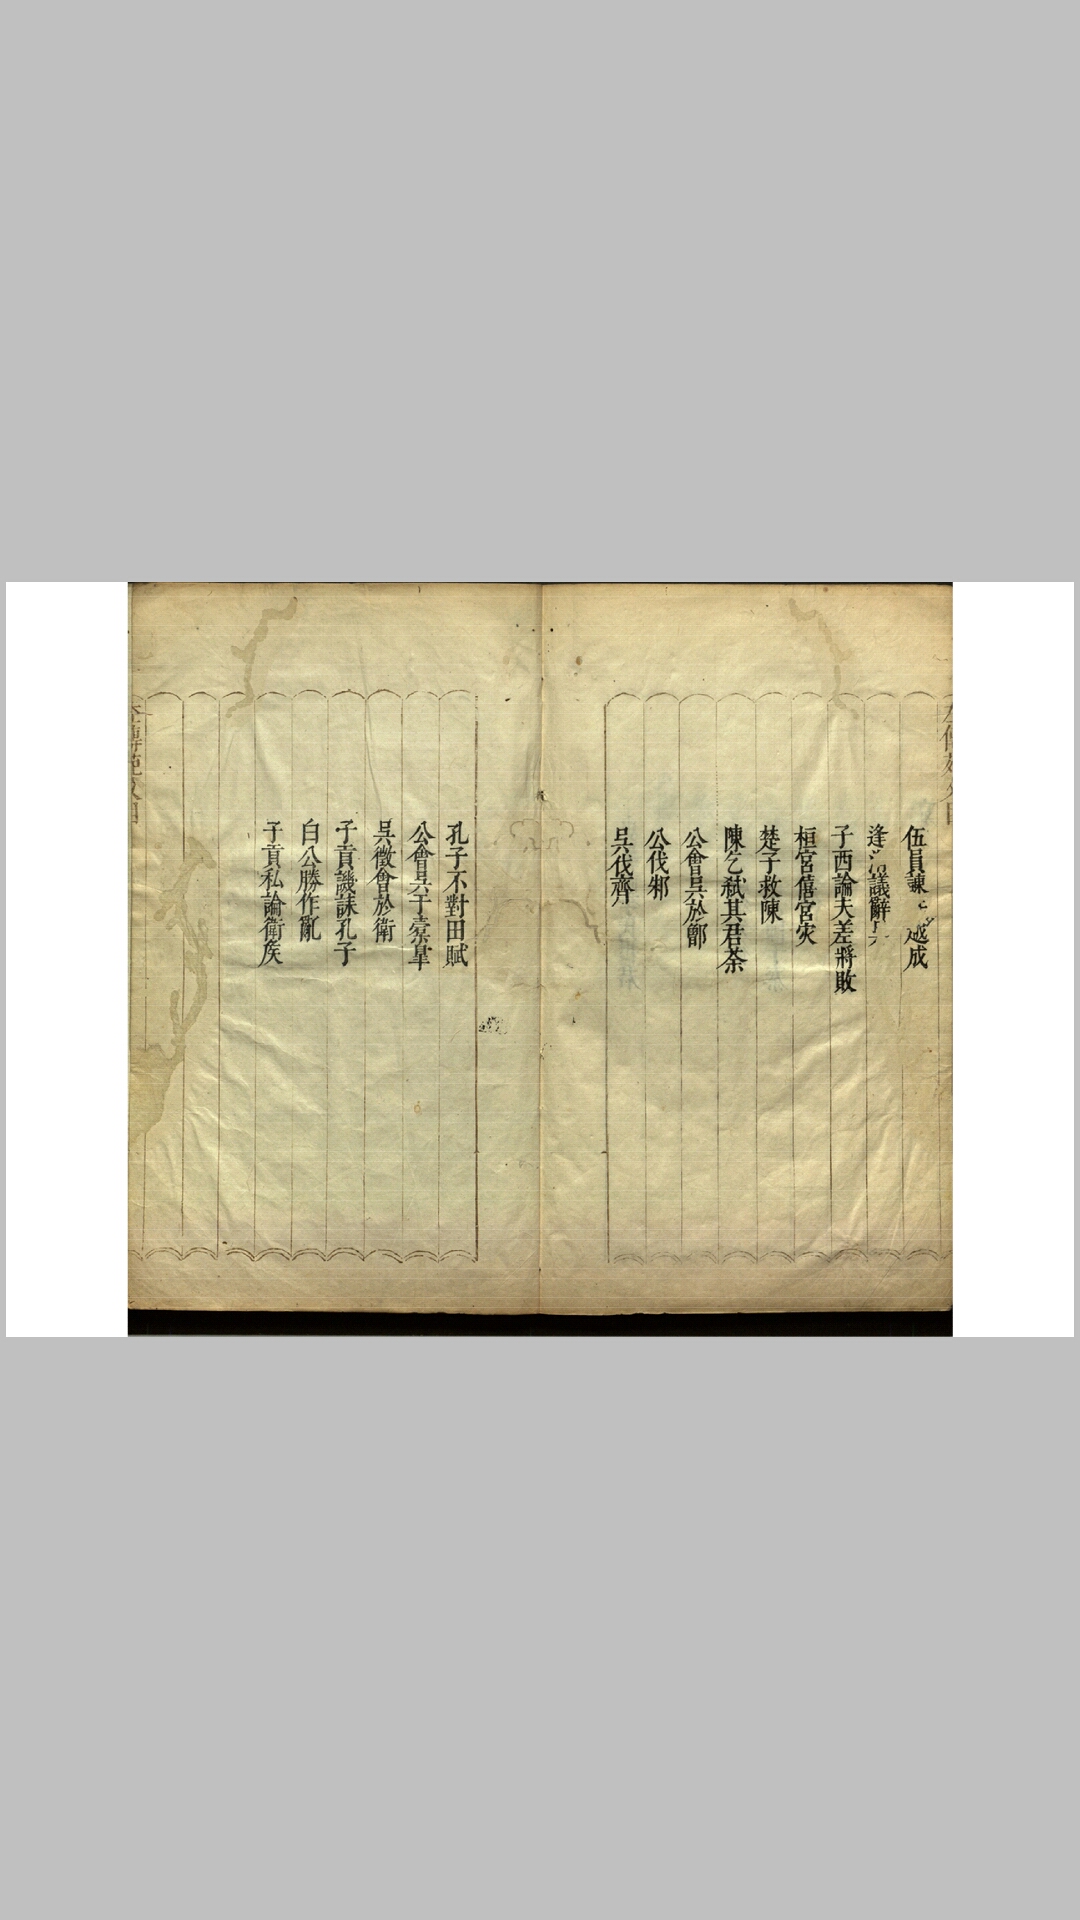 伍員諫　越成
逢　議辭吳
子西論夫差將敗
桓宮僖宮灾
楚子救陳
陳乞弒其君荼
公會吳於鄫
公伐邾
吳伐齊
孔子不對田賦
公會吳于橐皐
吳徵會於衛
子貢譏誄孔子
白公勝作亂
子貢私論衛矦